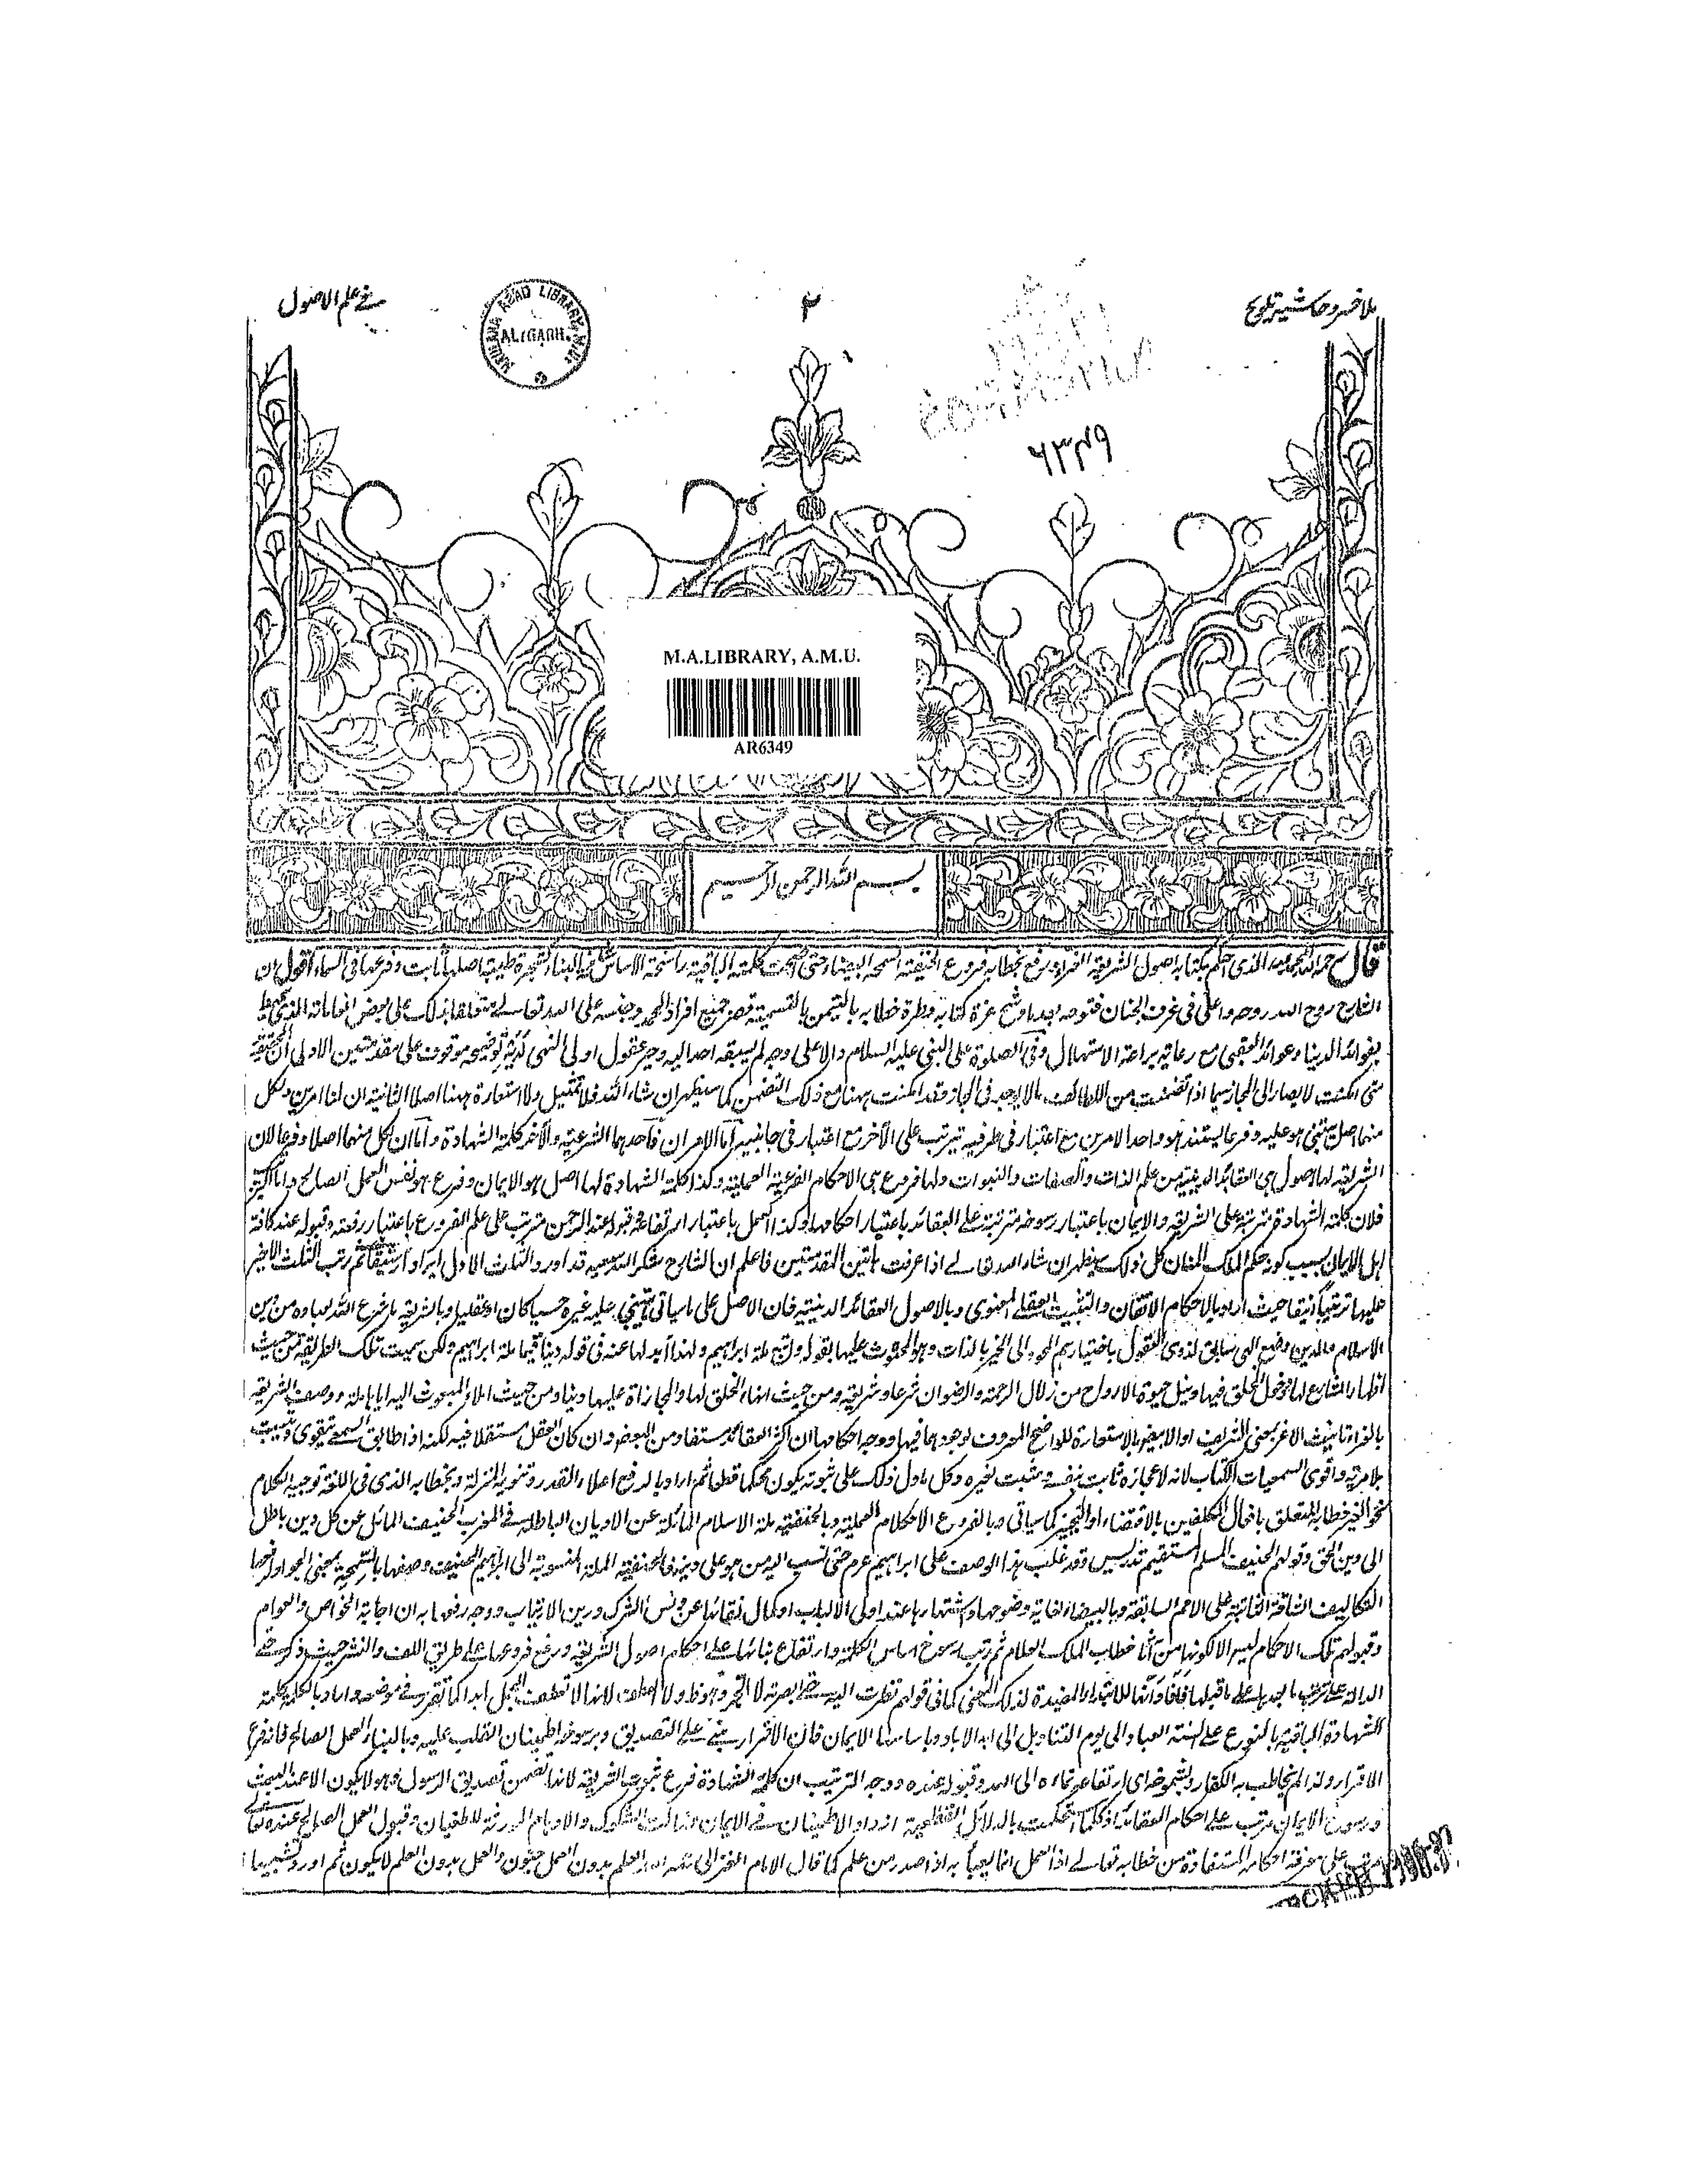 ملا خسرو حاشیة تلویح
۲
فی علم الاصول
MAULANA AZAD LIBRARY
ALIGARH.
۶۳۴۹
M.A.LIBRARY, A.M.U.
AR6349
بسم الله الرحمن الرحیم
قال رحمه الله الحمد لله الذی احکم بکتابه اصول الشریعة الغراء ورفع بخطابه فروع الحنیفیة السمحة البیضاء حتی اضحت کلمته الباقیة راسخة الاساس شامخة البناء کشجرة طیبة اصلها ثابت وفرعها فی السماء اقول ان
الشارح روح الله روحه واعلی فی غرف الجنان فتوحه بعد ما وشح غرة کتابه وطرة خطابه بالتیمن بالتسمیة قصر جمیع افراد الحمد وجنسه علی الله تعالی متعلقا بذلک علی بعض انعاماته
بفوائد الدنیا وعوائد العقبی مع رعایة براعة الاستهلال وفی الصلوة علی النبی علیه السلام والاعلی وجه لم یسبقه احد الیه وحیر عقول اولی النهی لدیه توضیحه موقوف علی مقدمتین الاولی ان الحقیقة
متی امکنت لا یصار الی المجاز سیما اذا تضمنت من اللطائف ما لا یوجد فی المجاز وقد امکنت ههنا مع ذلک التضمن کما سیظهر ان شاء الله فلا تمثیل ولا استعارة ههنا اصلا الثانیة ان لنا امرین ولکل
منهما اصل یبتنی هو علیه وفرع یستند هو واحد الامرین مع اعتبار فی طرفیه یترتب علی الآخر مع اعتبار فی جانبیه اما الامران فاحدهما الشریعة والآخر کلمة الشهادة واما ان لکل منهما اصلا وفرعا لان
الشریعة لها اصول هی العقائد الدینیة من علم الذات والصفات والنبوات ولها فروع هی الاحکام الفرعیة العملیة وکذا کلمة الشهادة لها اصل هو الایمان وفرع هو نفس العمل الصالح واما
فلان کلمة الشهادة مترتبة علی الشریعة والایمان باعتبار رسوخه مترتبة علی العقائد باعتبار احکامها وکذا العمل باعتبار ارتفاعه وقبوله عند الرحمن مترتب علی علم الفروع باعتبار رفعته وقبوله عند کافة
اهل الایمان بسبب کونه حکم الملک المنان کل ذلک سیظهر ان شاء الله تعالی اذا عرفت هاتین المقدمتین فاعلم ان الشارح شکر الله سعیه قد اورد الثلث الاول ایرادا رشیقا ثم رتب الثلث الاخیر
علیها ترتیبا انیقا حیث اراد بالاحکام الاتقان والتثبیت العقلی المعنوی وبالاصول العقائد الدینیة فان الاصل علی ما سیاتی ما یبتنی علیه غیره حسیا کان او عقلیا وبالشریعة ما شرع الله لعباده من دین
الاسلام والدین وضع الهی سابق لذوی العقول باختیارهم المحمود الی الخیر بالذات وهو المحثوث علیها بقوله واتبع ملة ابراهیم ولهذا ابدلها عنه فی قوله دینا قیما ملة ابراهیم ولکن سمیت تلک الطریقة من حیث
اظهار الشارع لها ودخول الخلق فیها ونیل حیوة الارواح من زلال الرحمة والرضوان شرعا وشریعة ومن حیث انقیاد الخلق لها والمجازاة علیها دینا ومن حیث املاء المبعوث الیه ایاها ملة ووصف الشریعة
بالغراء تانیث الاغر بمعنی الشریف او الابیض بالاستعارة للواضح المعروف لوجودهما فیها ووجه احکامها ان اکثر العقائد مستفاد من البعض وان کان العقل مستقلا فیه لکنه اذا طابق السمع یتقوی ویثبت
بلا مریة واقوی السمعیات الکتاب لانه لاعجازه ثابت بنفسه ومثبت لغیره وکل ما دل ذلک علی ثبوته یکون محکما قطعا ثم اراد بالرفع اعلاء القدر وتنویه المنزلة وبخطابه الذی فی اللغة توجیه الکلام
نحو الغیر خطابه المتعلق بافعال المکلفین بالاقتضاء او التخییر کما سیاتی وبالفروع الاحکام العملیة وبالحنیفیة ملة الاسلام المائلة عن الادیان الباطلة فی المغرب الحنیف المائل عن کل دین باطل
الی دین الحق وقولهم الحنیف المسلم المستقیم تدریس وقد غلب هذا الوصف علی ابراهیم عم حتی نسب الیه من هو علی دینه فالحنیفیة الملة المنسوبة الی ابراهیم الحنیف وصفها بالسمحة بمعنی الجواد
التکالیف الشاقة الغالبة علی الامم السابقة وبالبیضاء لغایة وضوحها واشتهارها عند اولی الالباب او کمال نقائها عن دنس الشرک ورین الارتیاب ووجه رفعها به ان اجابة الخواص والعوام
وقبولهم تلک الاحکام لیس الا لکونها من آثار خطاب الملک العلام ثم رتب رسوخ اساس الکلمة وارتفاع بنائها علی احکام اصول الشریعة ورفع فروعها علی طریق اللف والنشر حیث ذکر حتی
الدالة علی ترتب ما بعدها علی ما قبلها وفاقا وانها للابتداء المفیدة لذلک المعنی کما فی قولهم نظرت الیه حتی ابصرته لا الجر وهو ظ ولا العطف لانها لا تعطف الجمل ابدا کما تقرر فی موضعه واراد بالکلمة کلمة
الشهادة الباقیة بالنوع علی السنة العباد الی یوم التناد بل الی ابد الاباد وباساسها الایمان فان الاقرار یبتنی علی التصدیق وبرسوخه اطمینان القلب علیه وبالبناء العمل الصالح فانه فرع
الاقرار ولذا لم یخاطب به الکفار وبشموخه ای ارتفاعه نماءه الی الله وقبوله عنده ووجه الترتیب ان کلمة الشهادة فرع ثبوت الشریعة لانها تضمن تصدیق الرسول وهو لا یکون الا عند البعث
ورسوخ الایمان مرتب علی احکام العقائد اذ کلما تحکمت بالدلائل القطعیة ازداد الاطمینان فی الایمان وزالت الشکوک والاوهام المورثة للطغیان وقبول العمل الصالح عنده تعالی
مرتب علی معرفة احکامه المستفادة من خطابه تعالی اذ العمل انما یعبأ به اذا صدر من علم کما قال الامام الغزالی رحمه الله العلم بدون العمل جنون والعمل بدون العلم لا یکون ثم اورد تشبیها